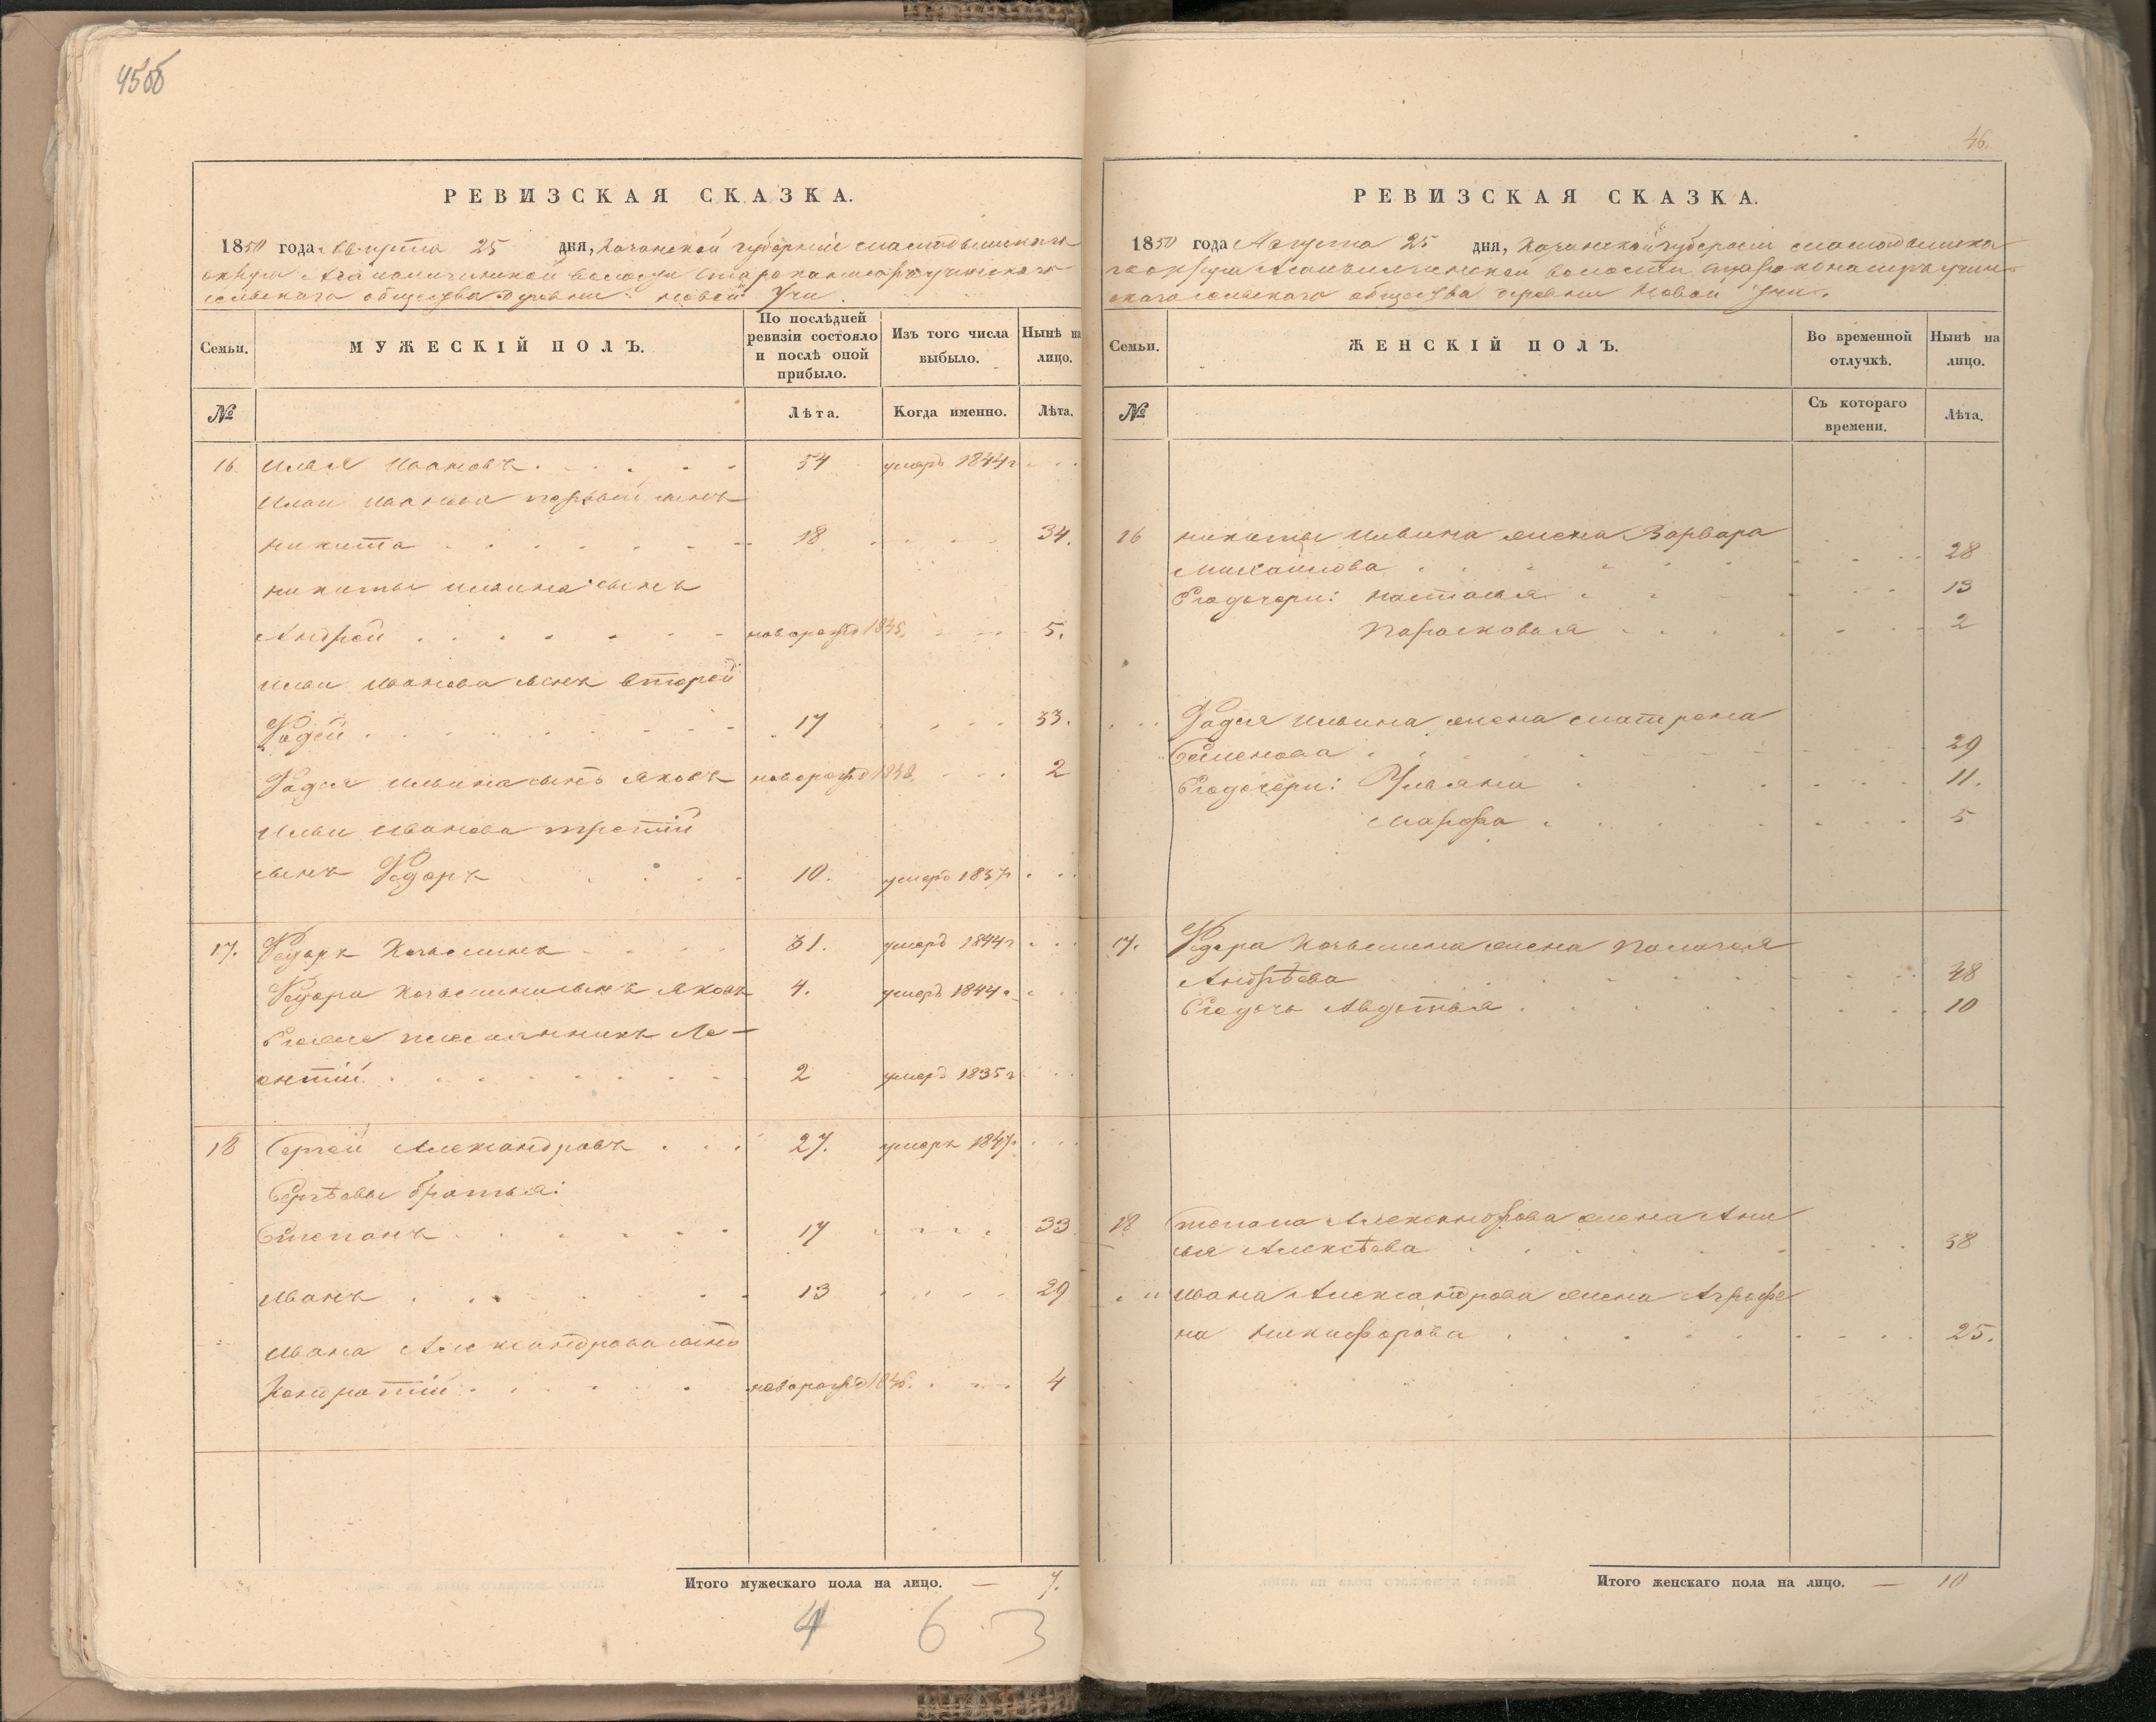 45об
РЕВИЗСКАЯ СКАЗКА.
1850 года Августа 25 дня, Казанской губернии Мамадышскаго
округа волости
сельскаго общества деревни Новой Учи.
Семьи.
МУЖЕСКІЙ ПОЛЪ.
По послѣдней ревизіи состояло и послѣ оной прибыло.
Изъ того числа выбыло.
Нынѣ на лицо.
№
Лѣта.
Когда именно.
Лѣта.
16. Илья Ивановъ 54 умеръ 1844г
Ильи Иванова первый сынъ
Никита 18 34.
Никиты Ильина сынъ
Андрей новорожд 1845. 5.
Ильи Иванова сынъ второй
Фадей 17 33.
Фадея Ильина сынъ Яковъ новорожд 1848. 2
Ильи Иванова третій
сынъ Федоръ 10. умеръ 1837г
17. Федоръ Козьминъ 31. умеръ 1844г
Федора Козьмина сынъ Яковъ 4. умеръ 1844г
Егоже племянникъ Ле-
онтій 2 умеръ 1835г
18 Сергей Александровъ 27. умеръ 1847.
Сергѣевы братья:
Степанъ 17 33
Иванъ 13 29
Ивана Александрова сынъ
Кондратій новорожд 1846. 4
Итого мужескаго пола на лицо. — 7.
4 6 3
46.
РЕВИЗСКАЯ СКАЗКА.
1850 года Августа 25 дня, Казанской губерніи Мамадышска
го округа волости
скаго сельскаго общества деревни Новой Учи.
Семьи.
ЖЕНСКІЙ ПОЛЪ.
Во временной отлучкѣ.
Нынѣ на лицо.
№
Съ котораго времени.
Лѣта.
16 Никиты Ильина жена Варвара
Михайлова 28
Его дочери: Настасья 13
Парасковья 2
Фадея Ильина жена Матрена
Семенова 29
Его дочери: Ульяна 11.
Марфа 5
17. Федора Козьмина жена Палагея
Андрѣева 48
Его дочь Авдотья 10
18 Степана Александрова жена Ани
сья Алексѣева 38
Ивана Александрова жена Аграфе
на Никифорова 25.
Итого женскаго пола на лицо. — 10